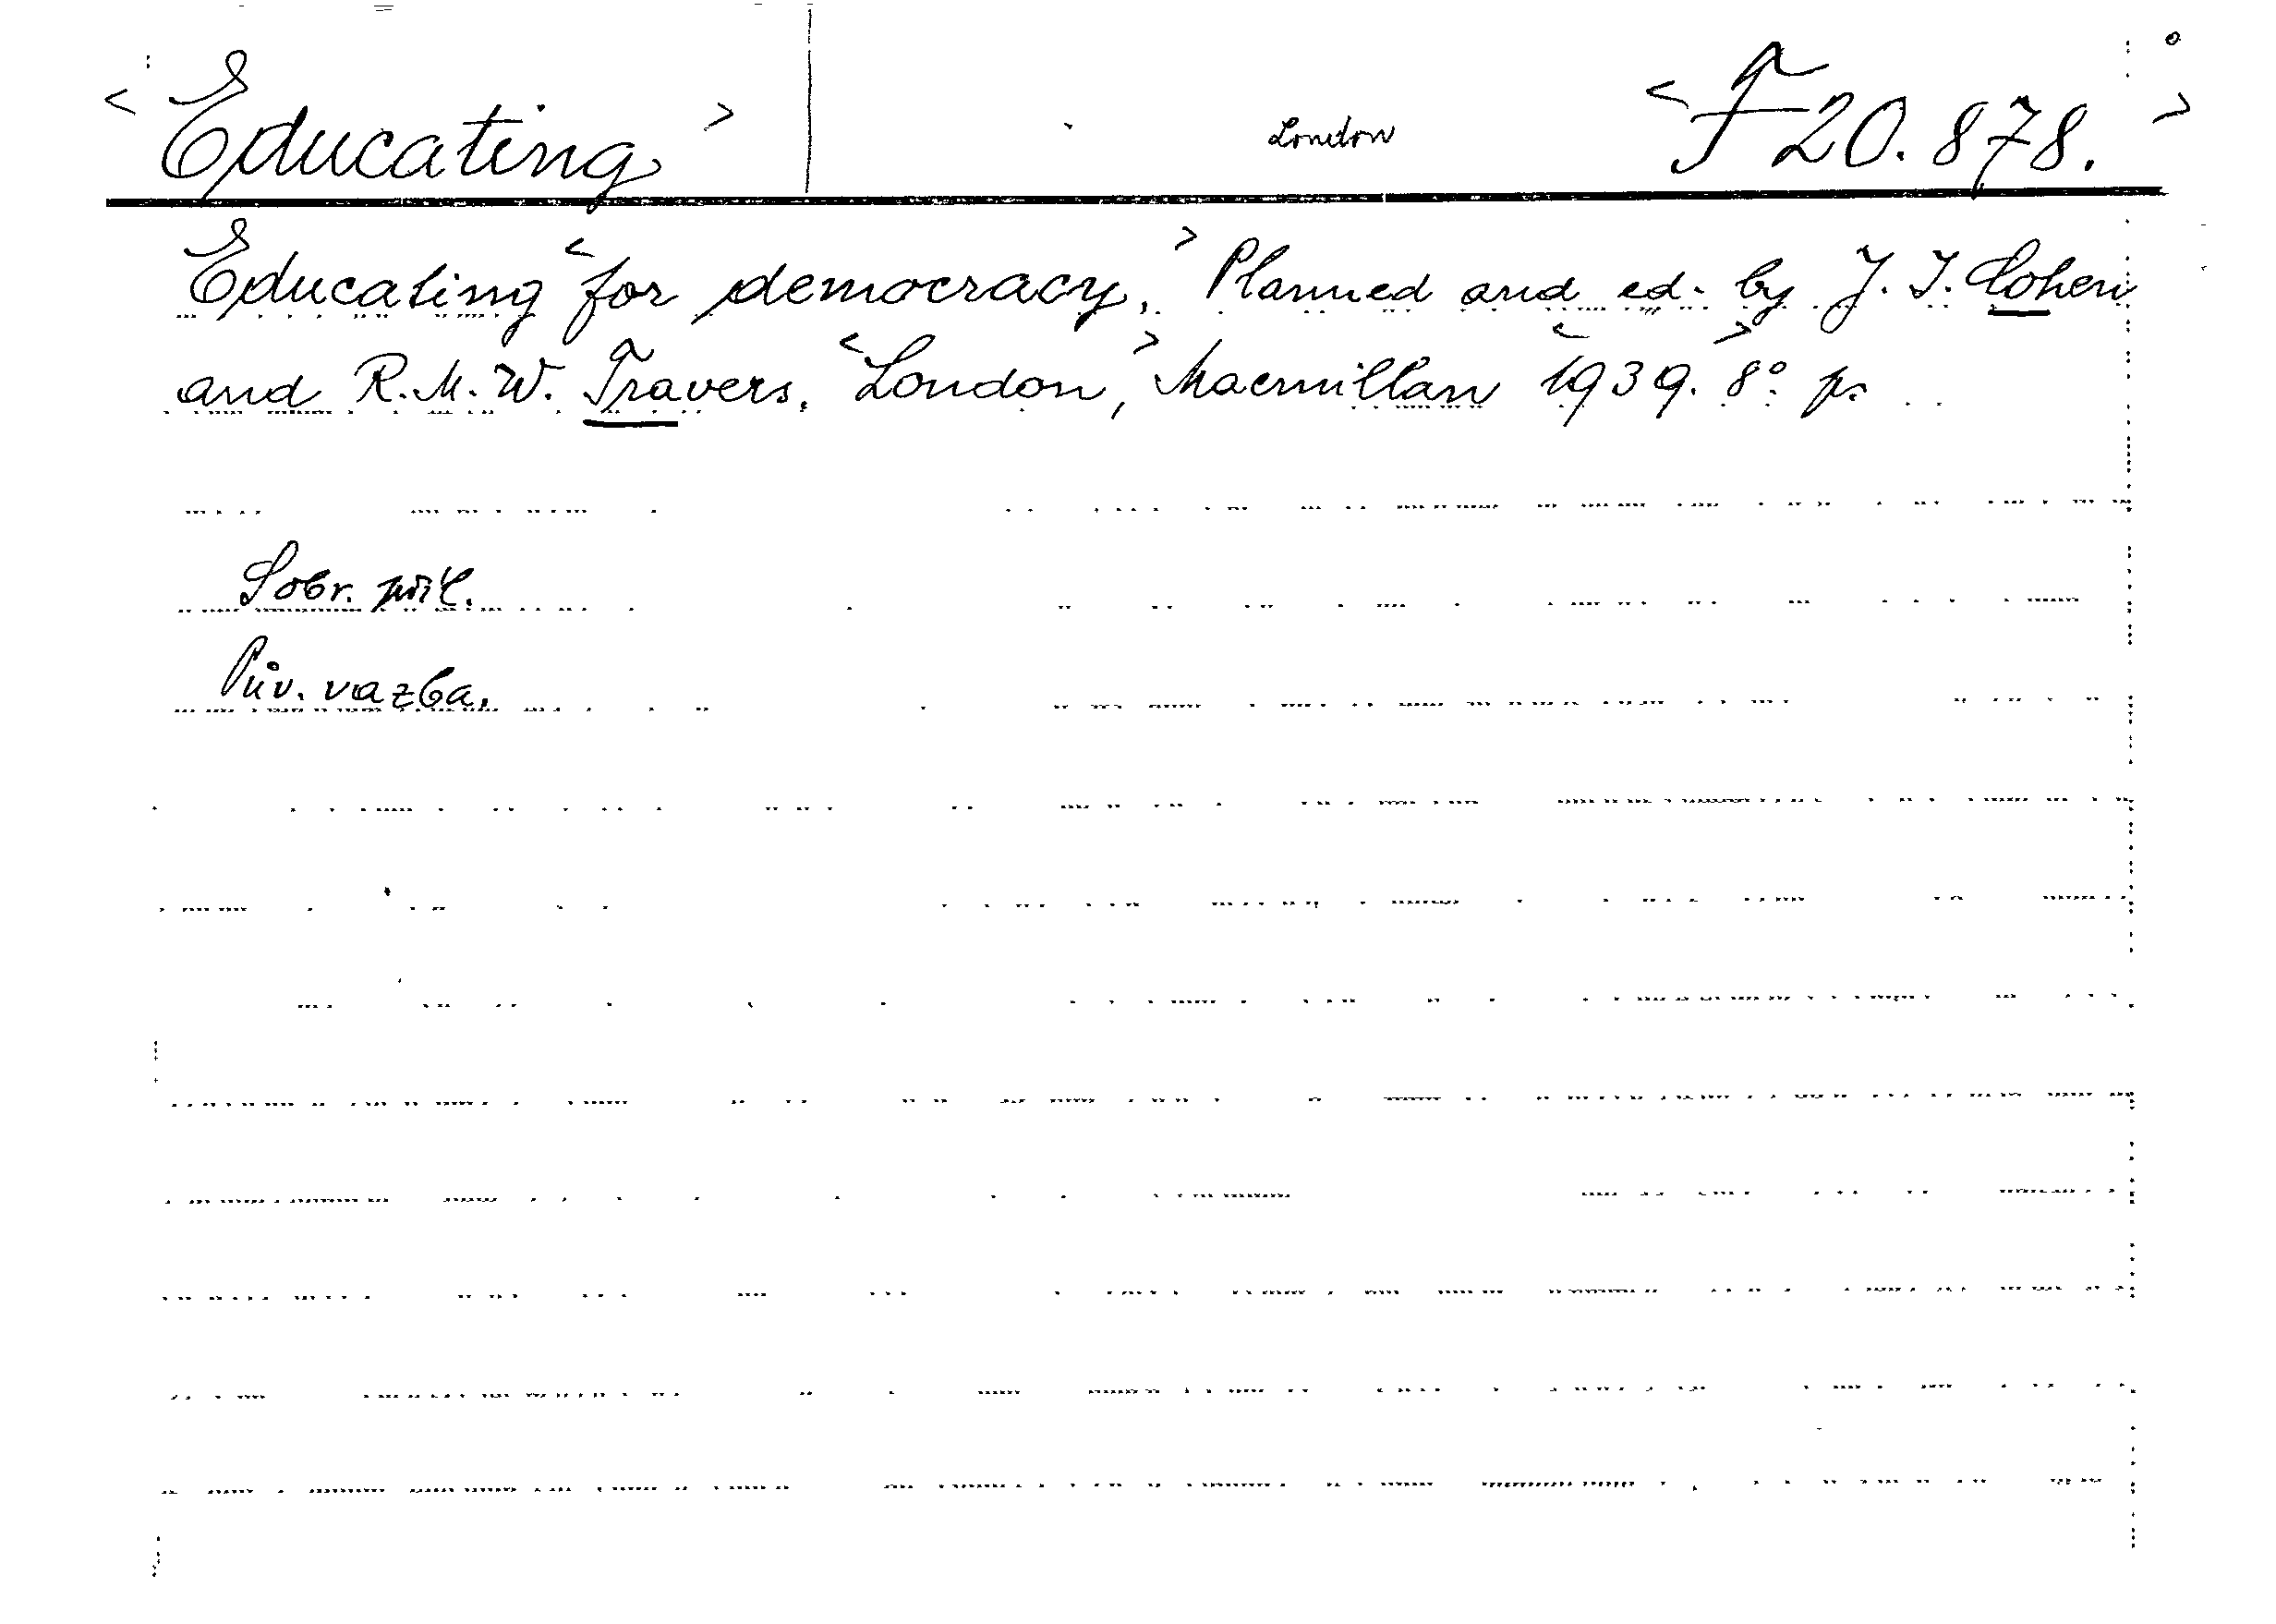 < Educating > London < F 20.878. >
Educating < for democracy. > Planned and ed. by J. I. Cohen
and R. M. W. Travers. < London, > Macmillan < 1939. > 8° p.
Sobr. příl.
Pův. vazba.